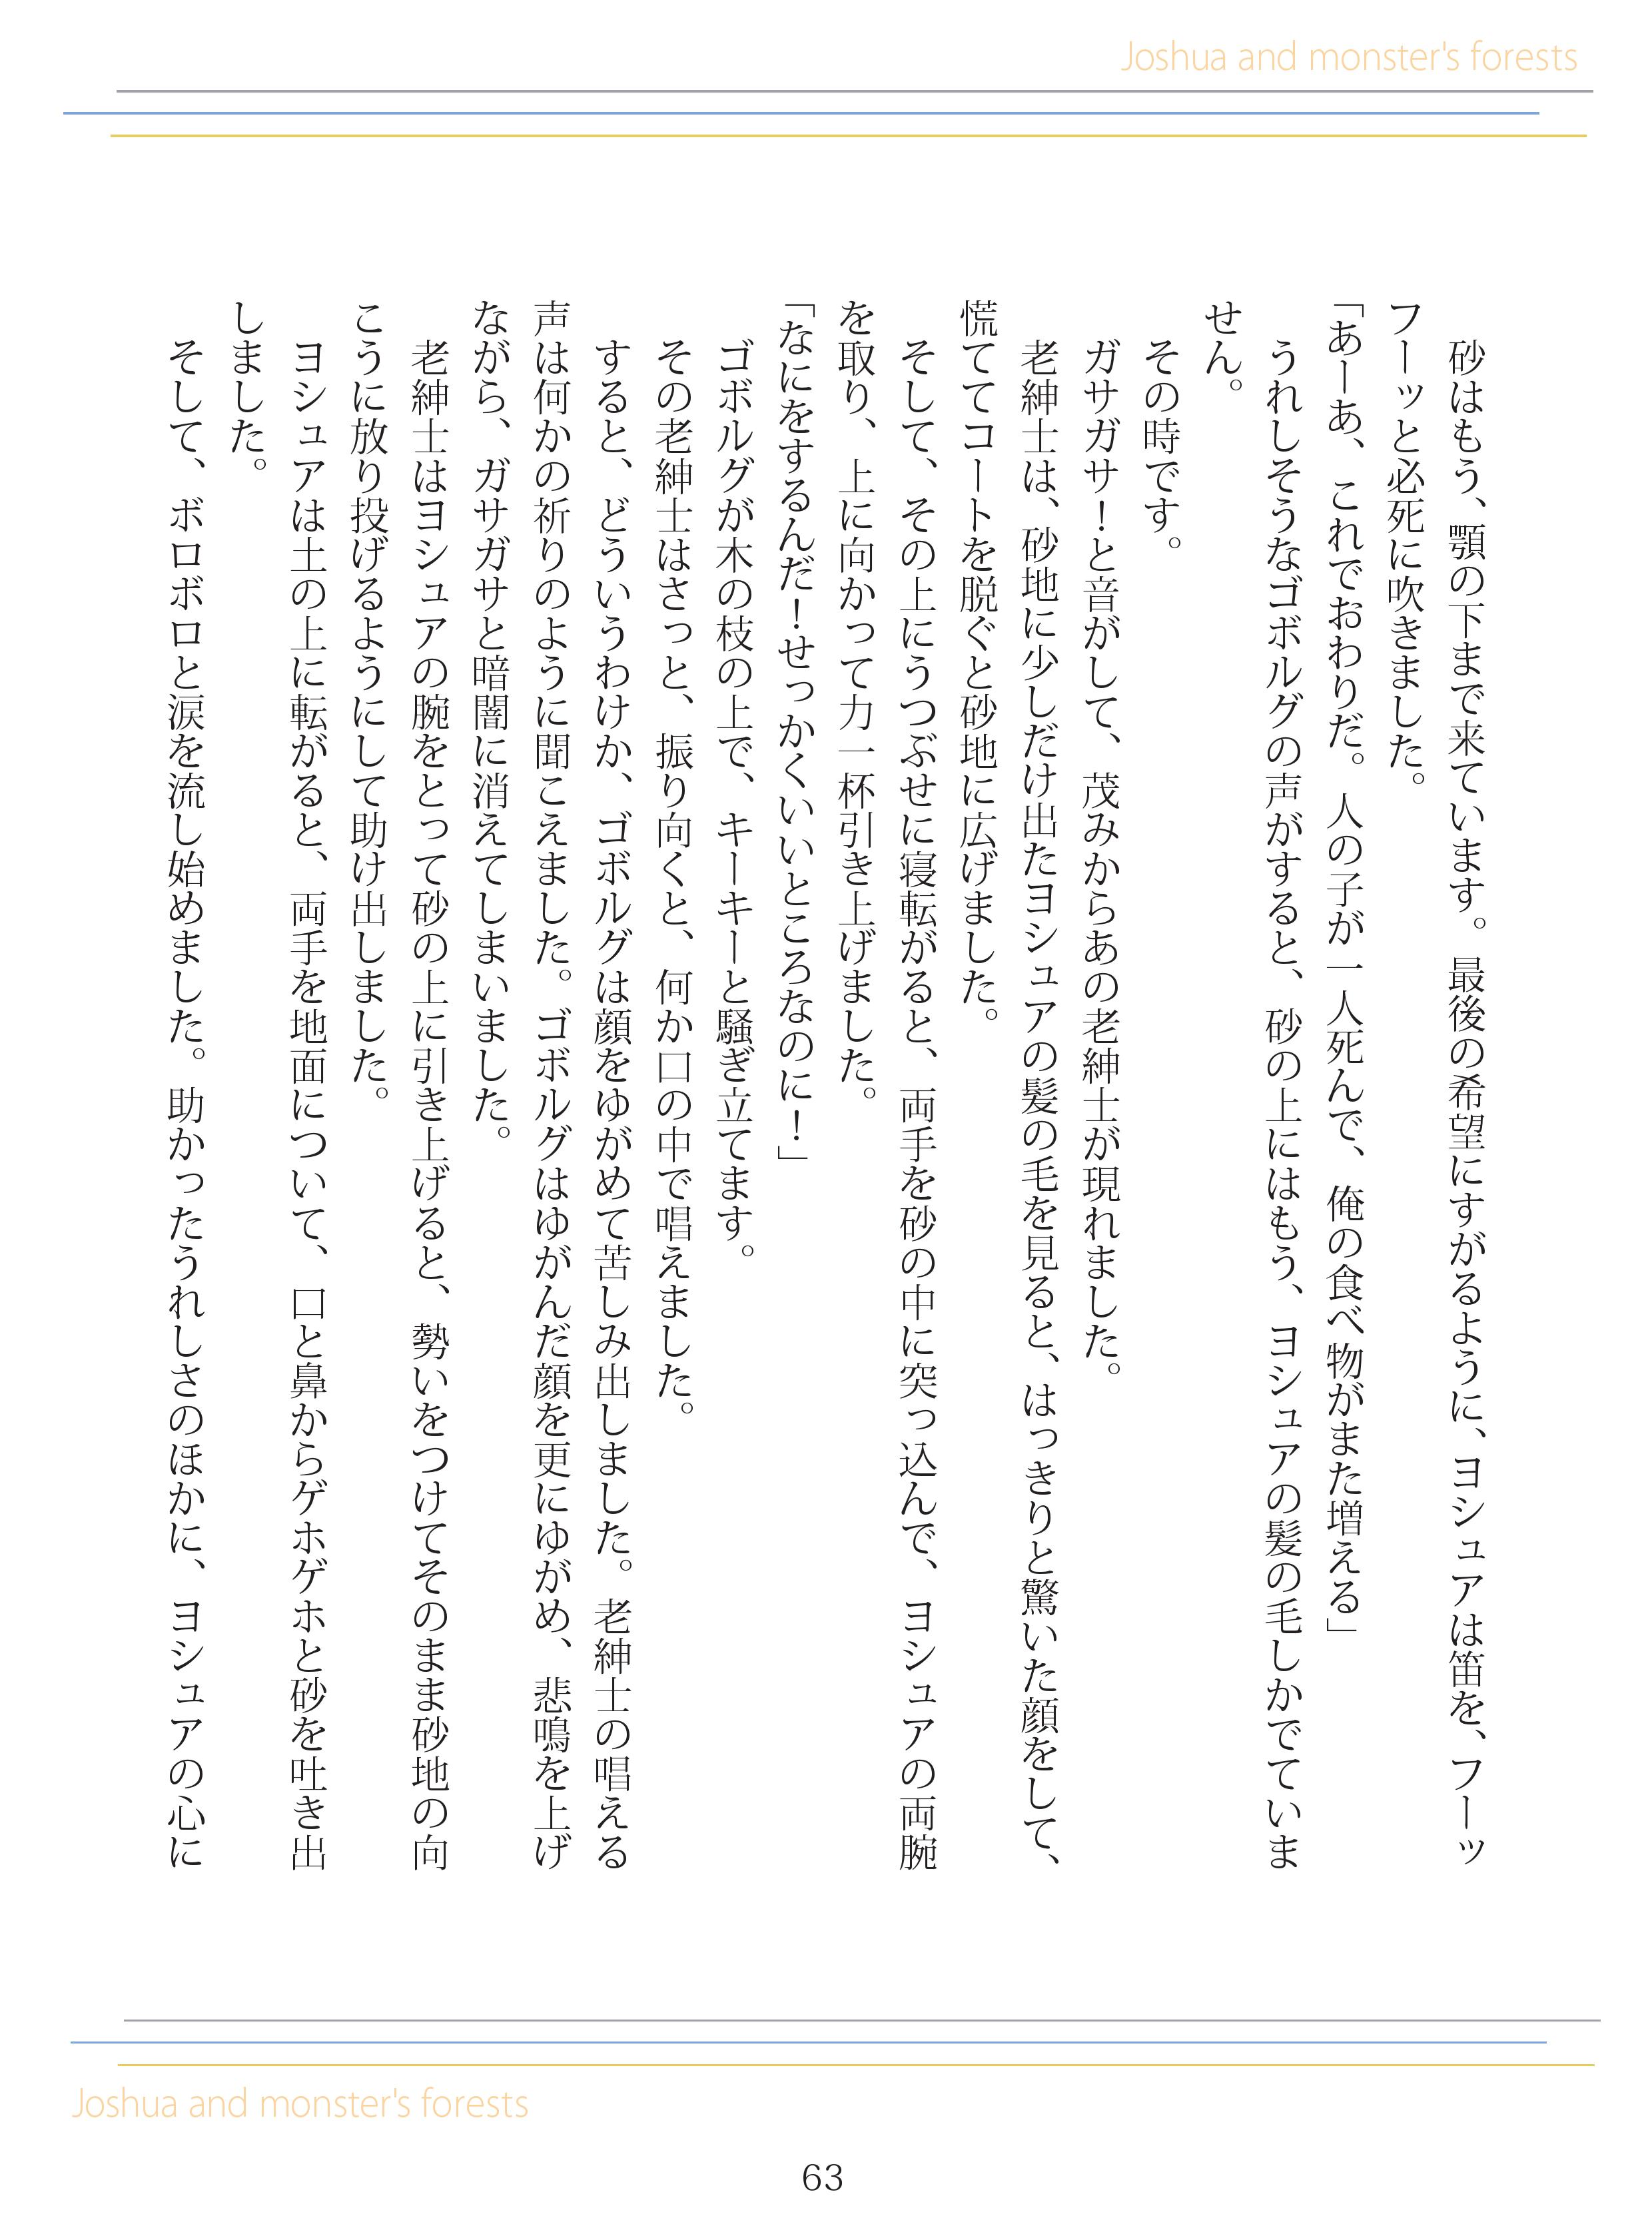 Joshua and monster's forests
砂はもう、顎の下まで来ています。最後の希望にすがるように、ヨシュアは笛を、フーッ
フーッと必死に吹きました。
「あーあ、これでおわりだ。人の子が一人死んで、俺の食べ物がまた増える」
うれしそうなゴボルグの声がすると、砂の上にはもう、ヨシュアの髪の毛しかでていま
せん。
その時です。
ガサガサ！と音がして、茂みからあの老紳士が現れました。
老紳士は、砂地に少しだけ出たヨシュアの髪の毛を見ると、はっきりと驚いた顔をして、
慌ててコートを脱ぐと砂地に広げました。
そして、その上にうつぶせに寝転がると、両手を砂の中に突っ込んで、ヨシュアの両腕
を取り、上に向かって力一杯引き上げました。
「なにをするんだ！せっかくいいところなのに！」
ゴボルグが木の枝の上で、キーキーと騒ぎ立てます。
その老紳士はさっと、振り向くと、何か口の中で唱えました。
すると、どういうわけか、ゴボルグは顔をゆがめて苦しみ出しました。老紳士の唱える
声は何かの祈りのように聞こえました。ゴボルグはゆがんだ顔を更にゆがめ、悲鳴を上げ
ながら、ガサガサと暗闇に消えてしまいました。
老紳士はヨシュアの腕をとって砂の上に引き上げると、勢いをつけてそのまま砂地の向
こうに放り投げるようにして助け出しました。
ヨシュアは土の上に転がると、両手を地面について、口と鼻からゲホゲホと砂を吐き出
しました。
そして、ボロボロと涙を流し始めました。助かったうれしさのほかに、ヨシュアの心に
Joshua and monster's forests
63